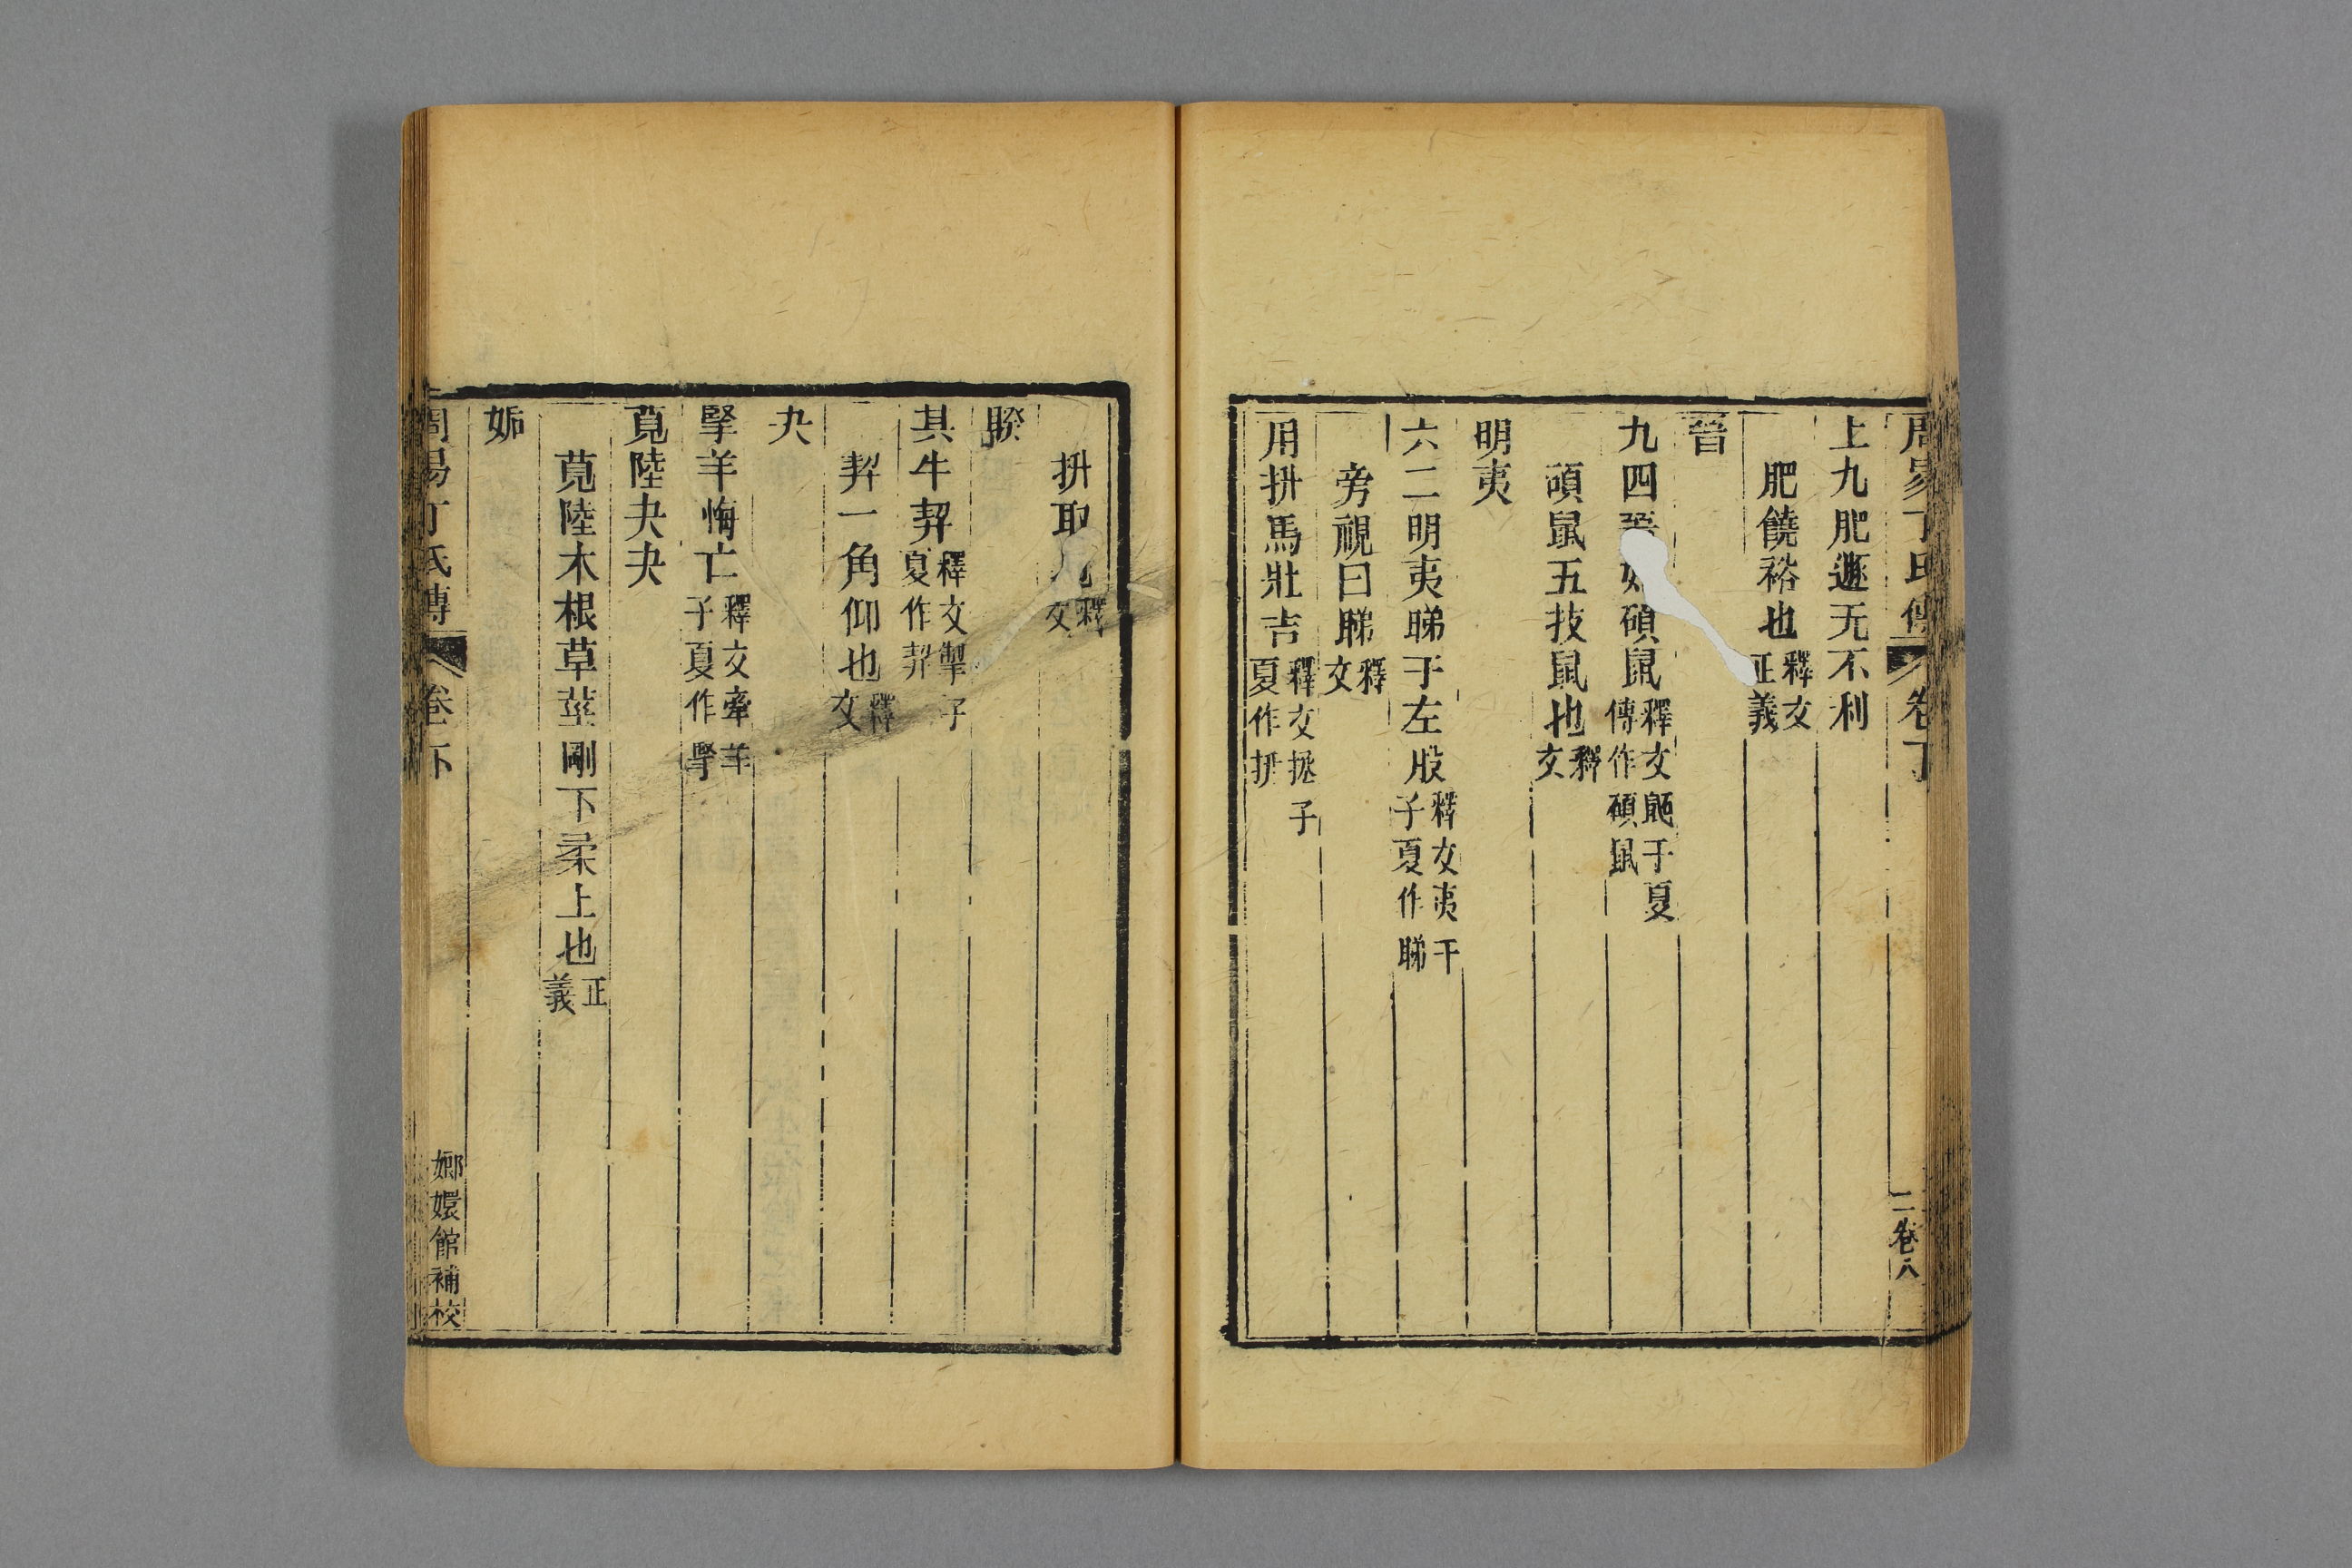 周易丁氏傳 卷下 二 卷八
上九肥遯无不利
肥饒裕也釋文正義
晉
九四晉如碩鼠釋文鼫子夏傳作碩鼠
碩鼠五技鼠也釋文
明夷
六二明夷睇于左股釋文夷于子夏作睇
旁視曰睇釋文
用抍馬壯吉釋文拯子夏作抍
抍取也釋文
睽
其牛挈釋文掣子夏作挈
挈一角仰也釋文
夬
掔羊悔亡釋文牽羊子夏作掔
莧陸夬夬
莧陸木根草莖剛下柔上也正義
姤
周易丁氏傳 卷下 嫏嬛館補校